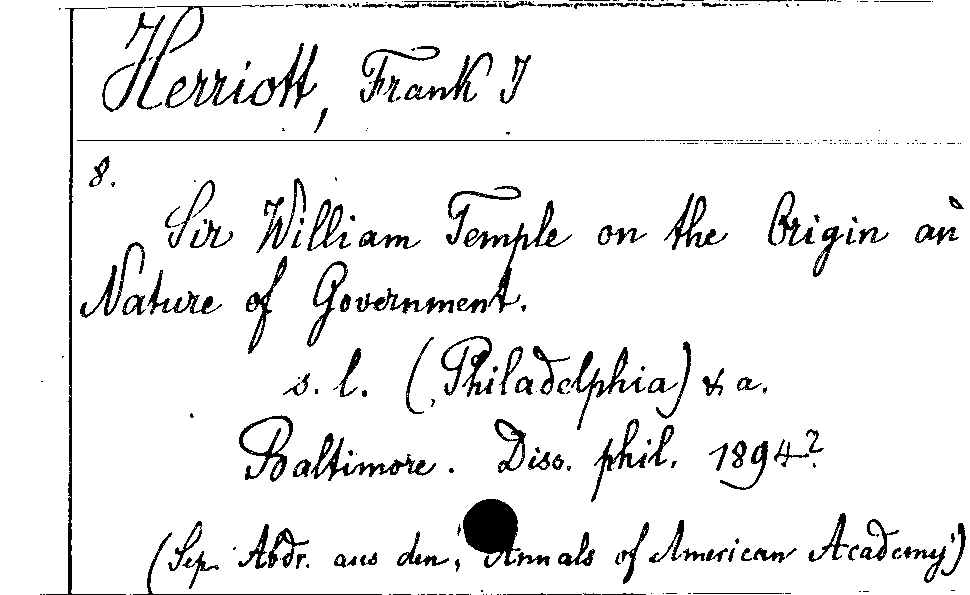 Herriott, Frank I
8.
Sir William Temple on the Origin an
Nature of Government.
s. l. (Philadelphia) & a.
Baltimore. Diss. phil. 1894?
(Sep. Abdr. aus den, Annals of American Academy')